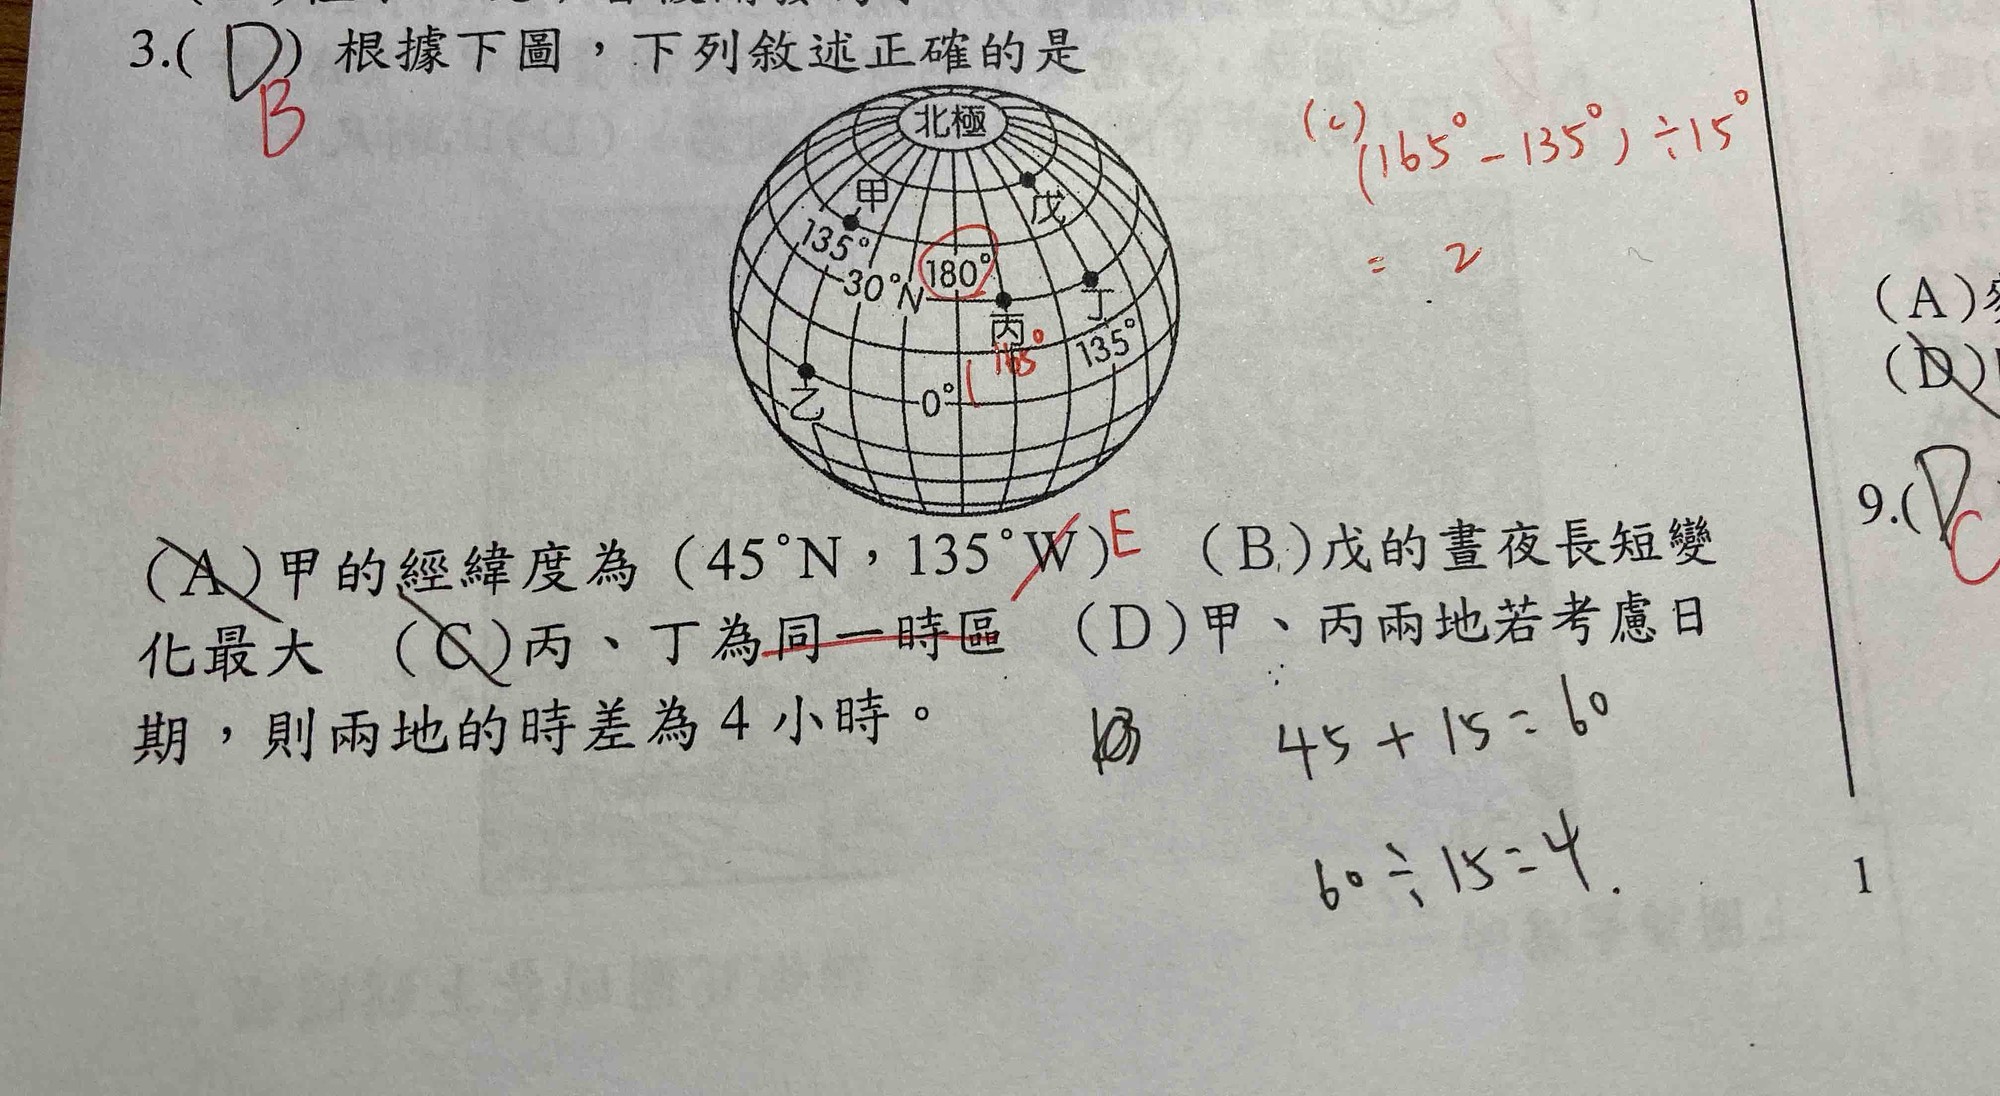 3.( D ) 根據下圖，下列敘述正確的是
B
北極
甲
戊
135°
30°N
180°
丙
丁
165°
135°
乙
0°
(c)
(165° - 135°) ÷ 15°
= 2
(A)甲的經緯度為（45°N，135°W) E (B)戊的晝夜長短變
化最大 (C)丙、丁為同一時區 (D)甲、丙兩地若考慮日
期，則兩地的時差為4小時。
45 + 15 = 60
60 ÷ 15 = 4.
(A)
(D)
9.( D
C
1